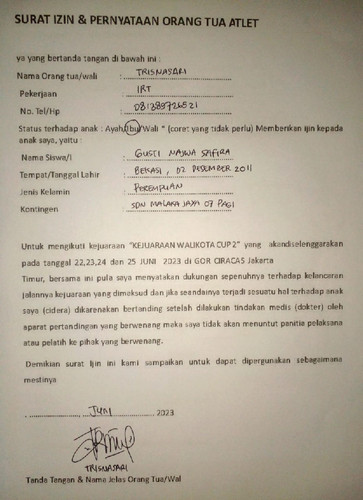 SURAT IZIN & PERNYATAAN ORANG TUA ATLET
ya yang bertanda tangan di bawah ini :
Nama Orang tua/wali : TRISNASARI
Pekerjaan : IRT
No. Tel/Hp : 081385726521
Status terhadap anak : Ayah/Ibu/Wali * (coret yang tidak perlu) Memberikan ijin kepada
anak saya, yaitu :
Nama Siswa/i : GUSTI NAJWA SYFIRA
Tempat/Tanggal Lahir : BEKASI, 02 DESEMBER 2011
Jenis Kelamin : PEREMPUAN
Kontingen : SDN MALAKA JAYA 07 PAGI
Untuk mengikuti kejuaraan "KEJUARAAN WALIKOTA CUP 2" yang akandiselenggarakan
pada tanggal 22,23,24 dan 25 JUNI 2023 di GOR CIRACAS Jakarta
Timur, bersama ini pula saya menyatakan dukungan sepenuhnya terhadap kelancaran
jalannya kejuaraan yang dimaksud dan jika seandainya terjadi sesuatu hal terhadap anak
saya (cidera) dikarenakan bertanding setelah dilakukan tindakan medis (dokter) oleh
aparat pertandingan yang berwenang maka saya tidak akan menuntut panitia pelaksana
atau pelatih ke pihak yang berwenang.
Demikian surat Ijin ini kami sampaikan untuk dapat dipergunakan sebagaimana
mestinya
JUNI 2023
TRISNASARI
Tanda Tangan & Nama Jelas Orang Tua/Wal